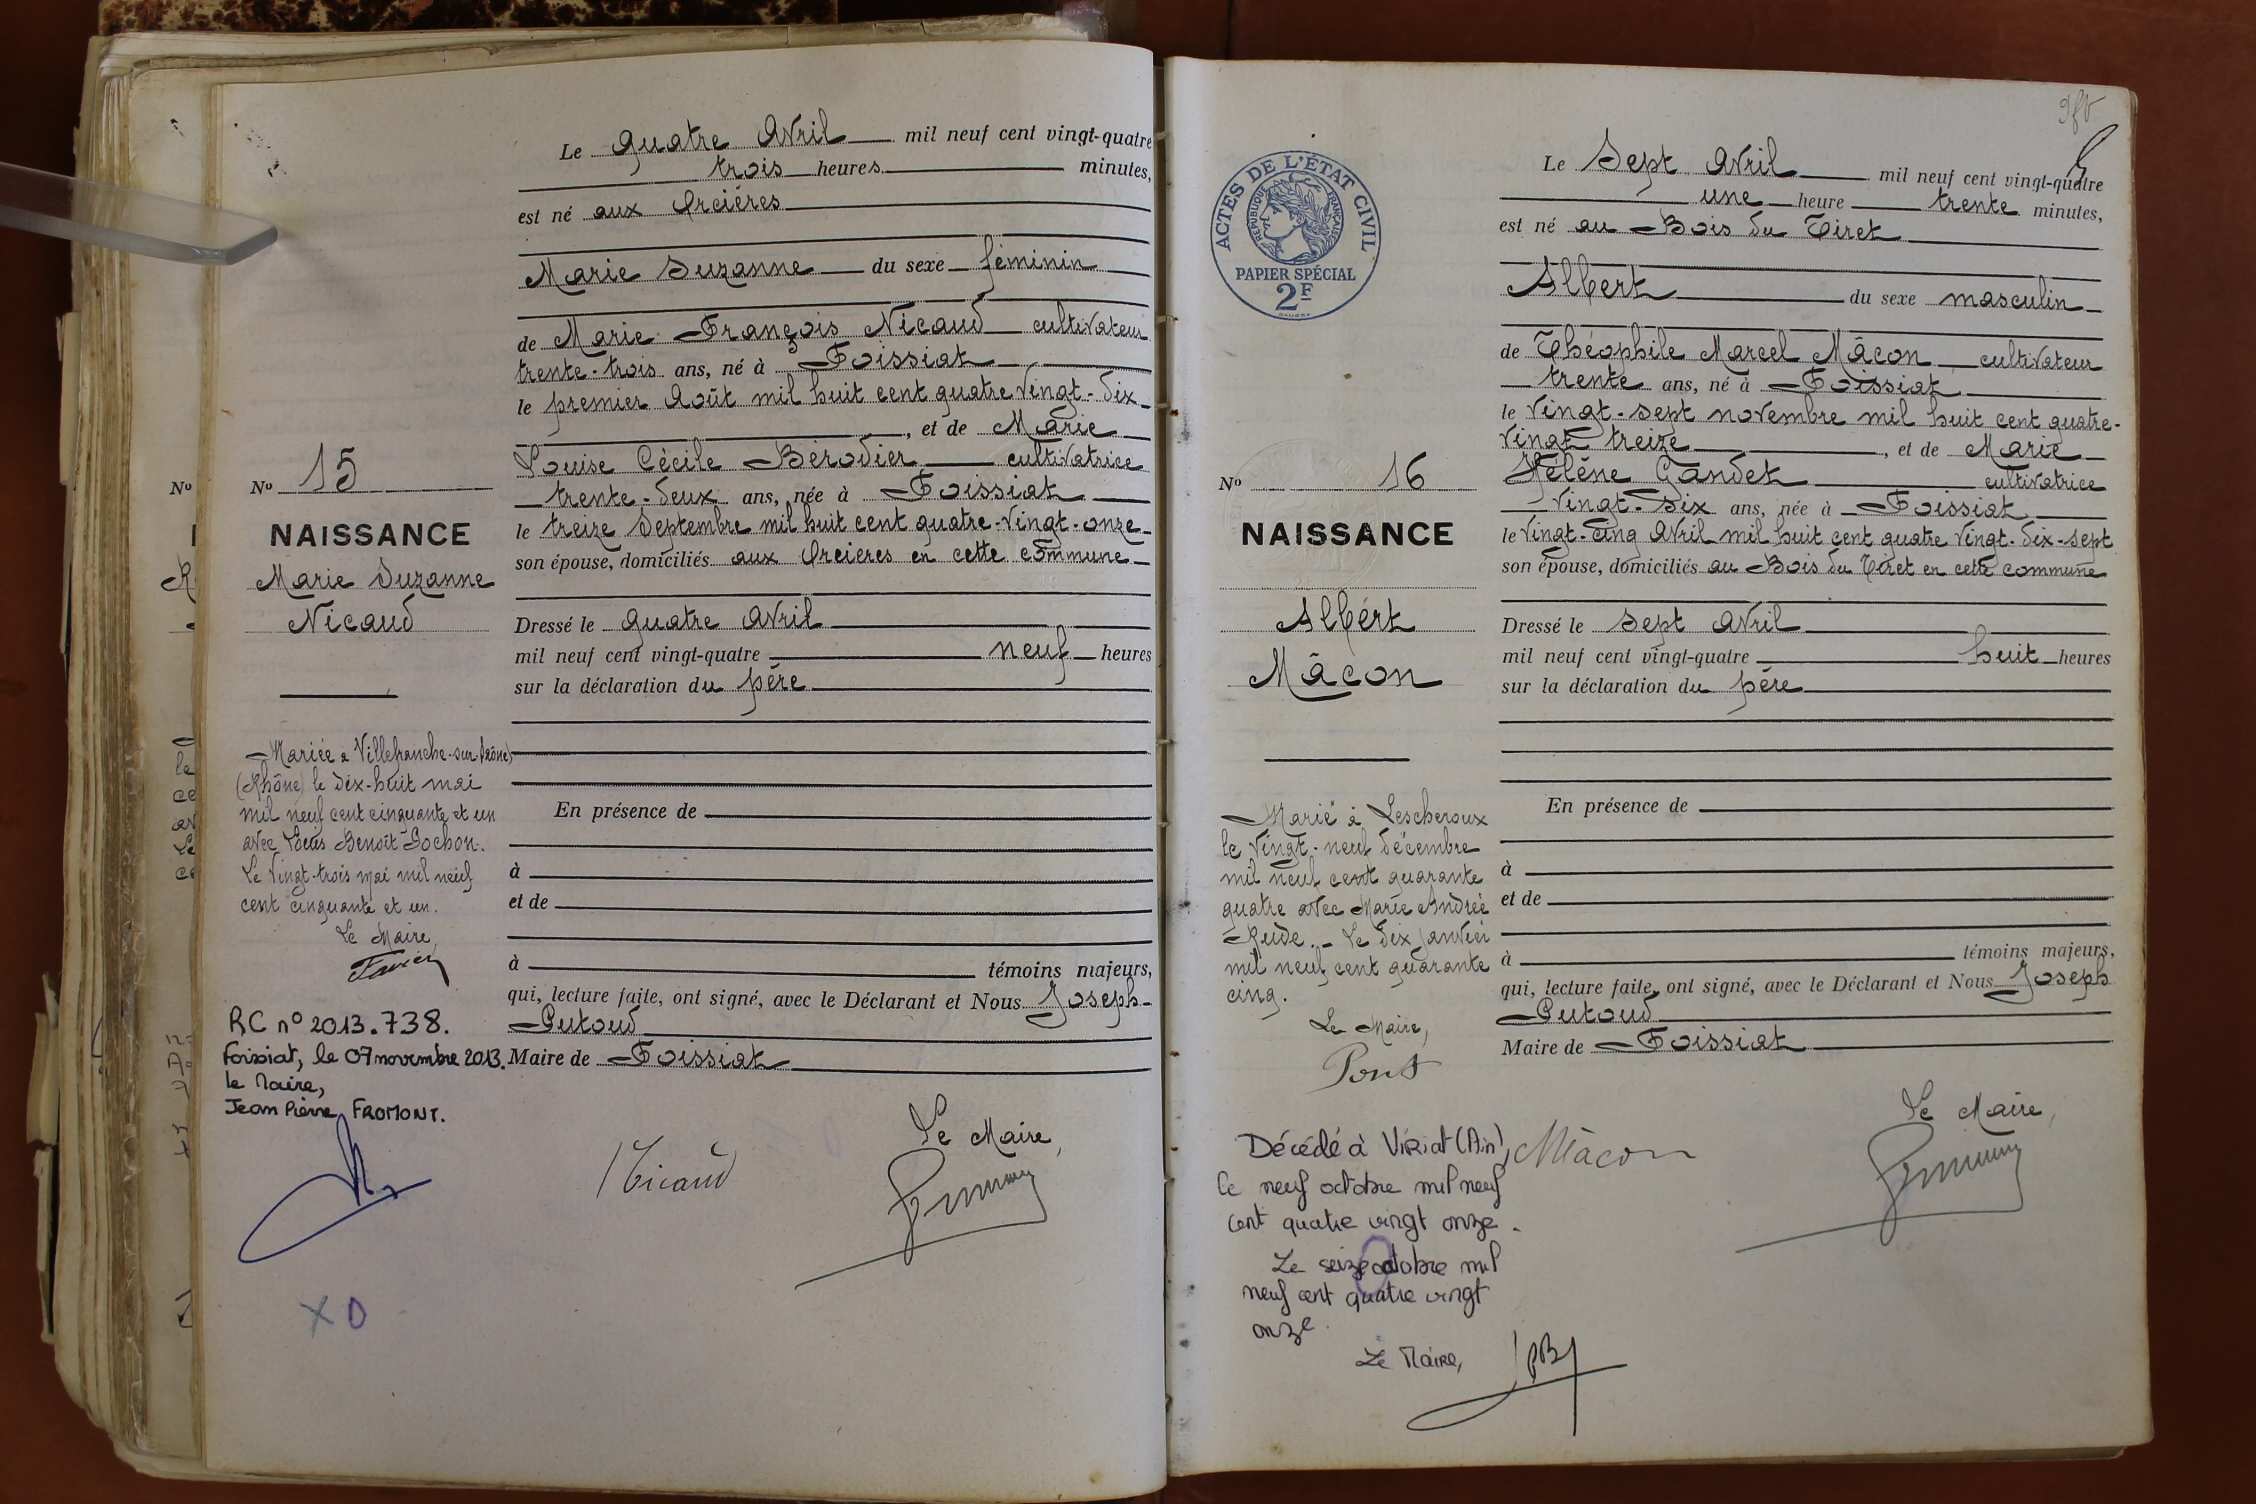 Le quatre Avril mil neuf cent vingt-quatre
trois heures minutes,
est né aux Orcières
Marie Suzanne du sexe féminin
de Marie François Nicaud cultivateur
trente-trois ans, né à Foissiat
le premier Août mil huit cent quatre vingt-dix
, et de Marie
Louise Cécile Bérodier cultivatrice
trente-deux ans, née à Foissiat
le treize Septembre mil huit cent quatre-vingt-onze
son épouse, domiciliés aux Orcières en cette commune
Dressé le quatre Avril
mil neuf cent vingt-quatre neuf heures
sur la déclaration du père
En présence de
à
et de
à témoins majeurs,
qui, lecture faite, ont signé, avec le Déclarant et Nous Joseph
Putoud
Maire de Foissiat
Nicaud
Le Maire,
No 15
NAISSANCE
Marie Suzanne
Nicaud
Mariée à Villefranche-sur-Saône
(Rhône) le dix-huit mai
mil neuf cent cinquante et un
avec Louis Benoît Gochon.
Le vingt-trois mai mil neuf
cent cinquante et un.
Le Maire,
RC n° 2013.738.
Foissiat, le 07 novembre 2013.
le Maire,
Jean Pierre FROMONT.
X O
No
ACTES DE L'ÉTAT CIVIL
RÉPUBLIQUE FRANÇAISE
PAPIER SPÉCIAL
2F
Le Sept Avril mil neuf cent vingt-quatre
une heure trente minutes,
est né au Bois du Tiret
Albert du sexe masculin
de Théophile Marcel Mâcon cultivateur
trente ans, né à Foissiat
le vingt-sept novembre mil huit cent quatre-
vingt treize , et de Marie
Hélène Gandet cultivatrice
vingt-six ans, née à Foissiat
le vingt-cinq Avril mil huit cent quatre vingt-dix-sept
son épouse, domiciliés au Bois du Tiret en cette commune
Dressé le sept Avril
mil neuf cent vingt-quatre huit heures
sur la déclaration du père
En présence de
à
et de
à témoins majeurs,
qui, lecture faite, ont signé, avec le Déclarant et Nous Joseph
Putoud
Maire de Foissiat
Mâcon
Le Maire,
No 16
NAISSANCE
Albert
Mâcon
Marié à Lescheroux
le vingt-neuf décembre
mil neuf cent quarante
quatre avec Marie Andrée
Rude. Le dix janvier
mil neuf cent quarante
cinq.
Le Maire,
Pont
Décédé à Viriat (Ain),
le neuf octobre mil neuf
cent quatre vingt onze.
Le seize octobre mil
neuf cent quatre vingt
onze.
Le Maire,